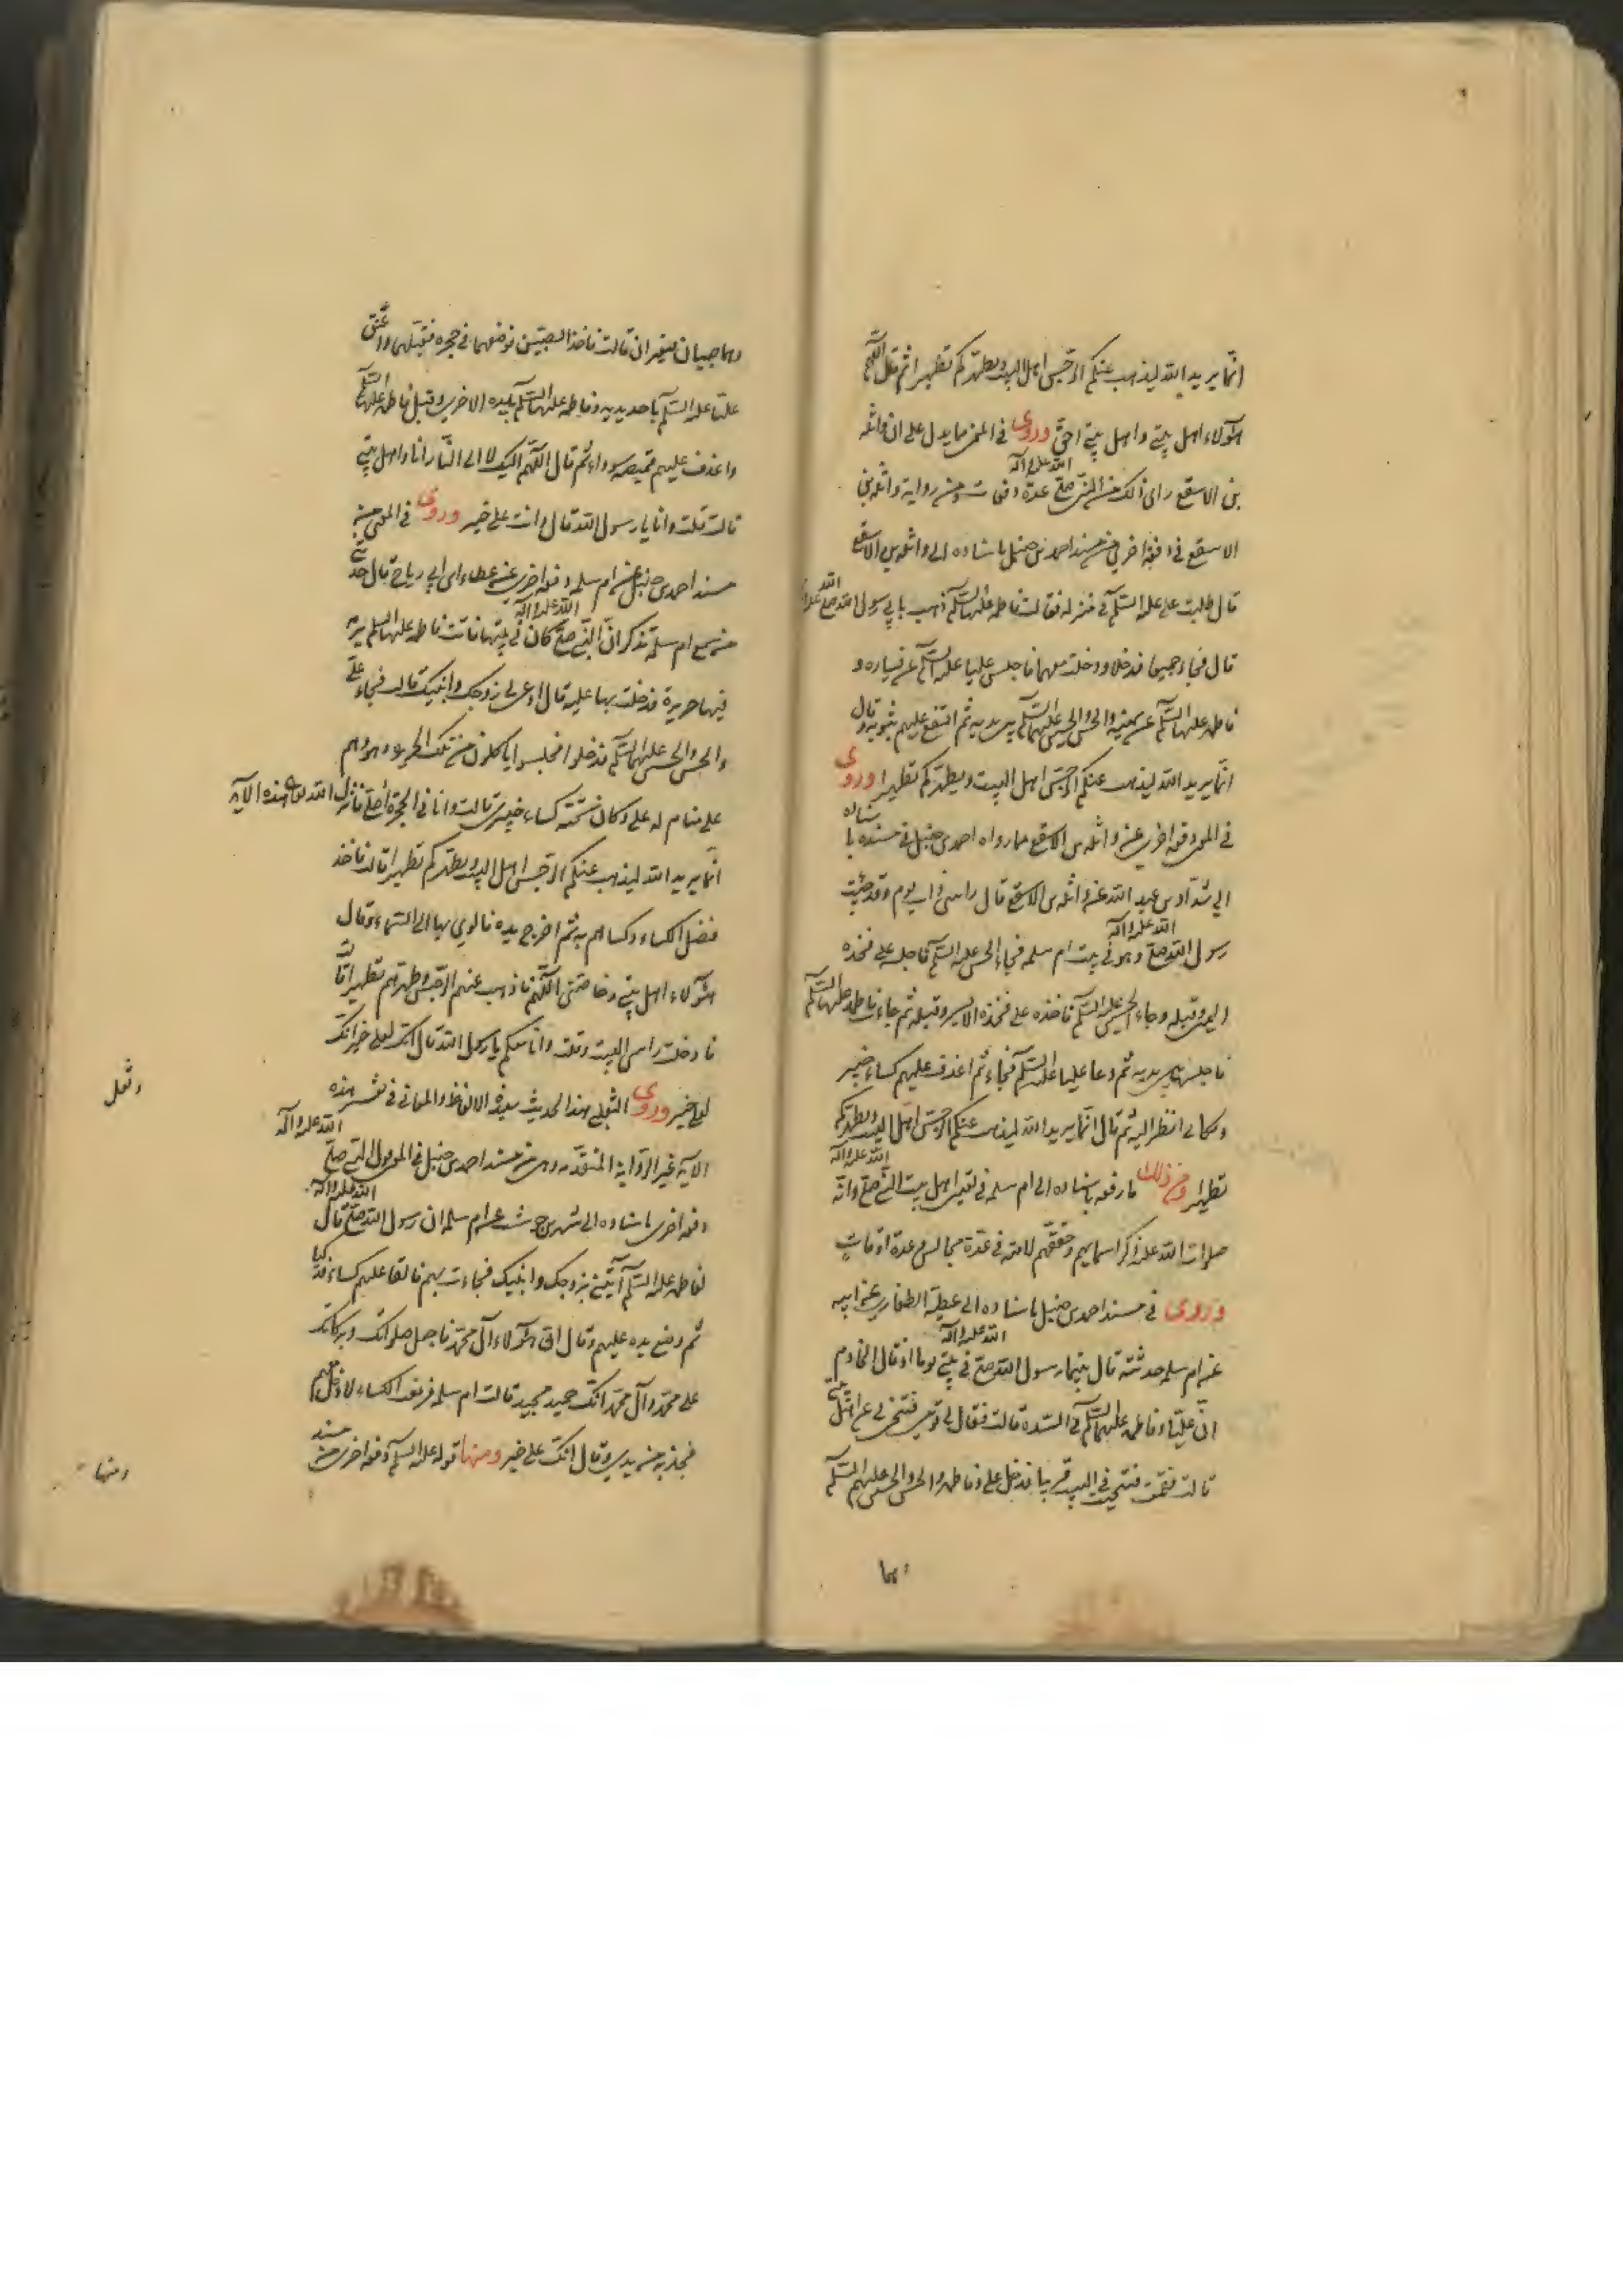 انّما يريد الله ليذهب عنكم الرّجس اهل البيت ويطهّركم تطهيرا ثم قال اللّهم
هؤلاء اهل بيتي واهل بيتي احقّ وروى في المعنى ما يدل على ان واثلة
بن الاسقع راى ذلك من النبي صلّى الله عليه وآله عدة دفعات ومن رواية واثلة بن
الاسقع في دفعة اخرى من مسند احمد بن حنبل باسناده الى واثلة بن الاسقع
قال طلبت علي عليه السّلم في منزله فقالت فاطمة عليها السّلم ذهب يأتي رسول الله صلّى الله عليه وآله
قال فجاء جميعا فدخلا ودخلت معهما فاجلس عليا عليه السّلم عن يساره و
فاطمة عليها السّلم عن يمينه والحسن والحسين عليهما السّلم بين يديه ثم التفع عليهم بثوبه وقال
انّما يريد الله ليذهب عنكم الرجس اهل البيت ويطهّركم تطهيرا وروى
في المعنى دفعة اخرى عن واثلة بن الاسقع مما رواه احمد بن حنبل في مسنده باسناده
الى شدّاد بن عبد الله عن واثلة بن الاسقع قال راسى ذات يوم وقد جئت
رسول الله صلّى الله عليه وآله وهو في بيت ام سلمه فجاء الحسن عليه السّلم فاجلسه على فخذه
اليمنى وقبله وجاء الحسين عليه السّلم فاخذه على فخذه الايسر وقبله ثم جاءت فاطمة عليها السّلم
فاجلسها بين يديه ثم دعا عليا عليه السّلم فجاء ثم اغدف عليهم كساء خيبر
وكاني انظر اليه ثم قال انّما يريد الله ليذهب عنكم الرجس اهل البيت ويطهّركم
تطهيرا ومن ذلك ما رفعه باسناده الى ام سلمه في تعيين اهل بيت النبي صلّى الله عليه وآله وانّه
صلوات الله عليه ذكر اسمايهم وحققهم لامته في عدّة مجالس وعدة اوقات
وروى في مسند احمد بن حنبل باسناده الى عطية الطفاري عن ابيه
عن ام سلمه حدثته قال بينما رسول الله صلّى الله عليه وآله في بيتي يوما اذ قال الخادم
انّ عليّا وفاطمة عليهما السّلم في السّدة قالت فقال لي قومي فتنحّي لي عن اهل بيتي
قالت فقمت فتنحّيت في البيت قريبا فدخل علي وفاطمة والحسن والحسين عليهم السّلم
وهما
وهما صبيان صغيران قالت فاخذ الصبيّين فوضعهما في حجره فقبّلهما واعتنق
عليّا عليه السّلم باحدى يديه وفاطمة عليها السّلم باليد الاخرى وقبل فاطمة عليها السّلم
واغدف عليهم خميصة سوداء ثم قال اللّهم اليك لا الى النّار انا واهل بيتي
قالت قلت وانا يا رسول الله قال وانت على خير وروى في المعنى من
مسند احمد بن حنبل عن ام سلمه دفعة اخرى عن عطاء ابن ابي رياح قال حدثني
من سمع ام سلمة تذكر انّ النّبي صلّى الله عليه وآله كان في بيتها فاتت فاطمة عليها السلم ببرمة
فيها حريرة فدخلت بها عليه قال ادعي لي زوجك وابنيك قالت فجاء عليّ
والحسن والحسين عليهما السّلم فدخلوا فجلسوا ياكلون من تلك الحريرة وهو وهم
على منام له على دكان تحته كساء خيبري قالت وانا في الحجرة اصلي فانزل الله تعالى هذه الآية
انّما يريد الله ليذهب عنكم الرّجس اهل البيت ويطهّركم تطهيرا قالت فاخذ
فضل الكساء وكساهم به ثم اخرج يده فالوى بها الى السّماء وقال
هؤلاء اهل بيتي وخاصّتي اللّهم فاذهب عنهم الرّجس وطهرهم تطهيرا قالت
فادخلت راسي البيت وقلت وانا معكم يا رسول الله قال انّك لعلى خير انك
لعلى خير وروى الثعلبي هذا الحديث بهذه الالفاظ والمعاني في تفسير هذه
الآية غير الرّواية المتقدّمة ومن مسند احمد بن حنبل في المعنى الى النبي صلّى الله عليه وآله
دفعة اخرى باسناده الى شهر بن حوشب عن ام سلمه ان رسول الله صلّى الله عليه وآله قال
لفاطمة عليها السّلم ائتيني بزوجك وابنيك فجاءت بهم فالقا عليهم كساء فدكيا
ثم وضع يده عليهم وقال انّ هؤلاء آل محمّد فاجعل صلواتك وبركاتك
على محمّد وآل محمّد انّك حميد مجيد قالت ام سلمه فرفعت الكساء لادخل معهم
فجذبه من يدي وقال انّك على خير ومنها قوله عليه السّلم دفعة اخرى من مسند
ومنها